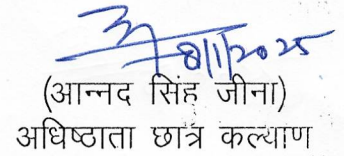 8/1/2025
(आन्नद सिंह जीना)
अधिष्ठाता छात्र कल्याण